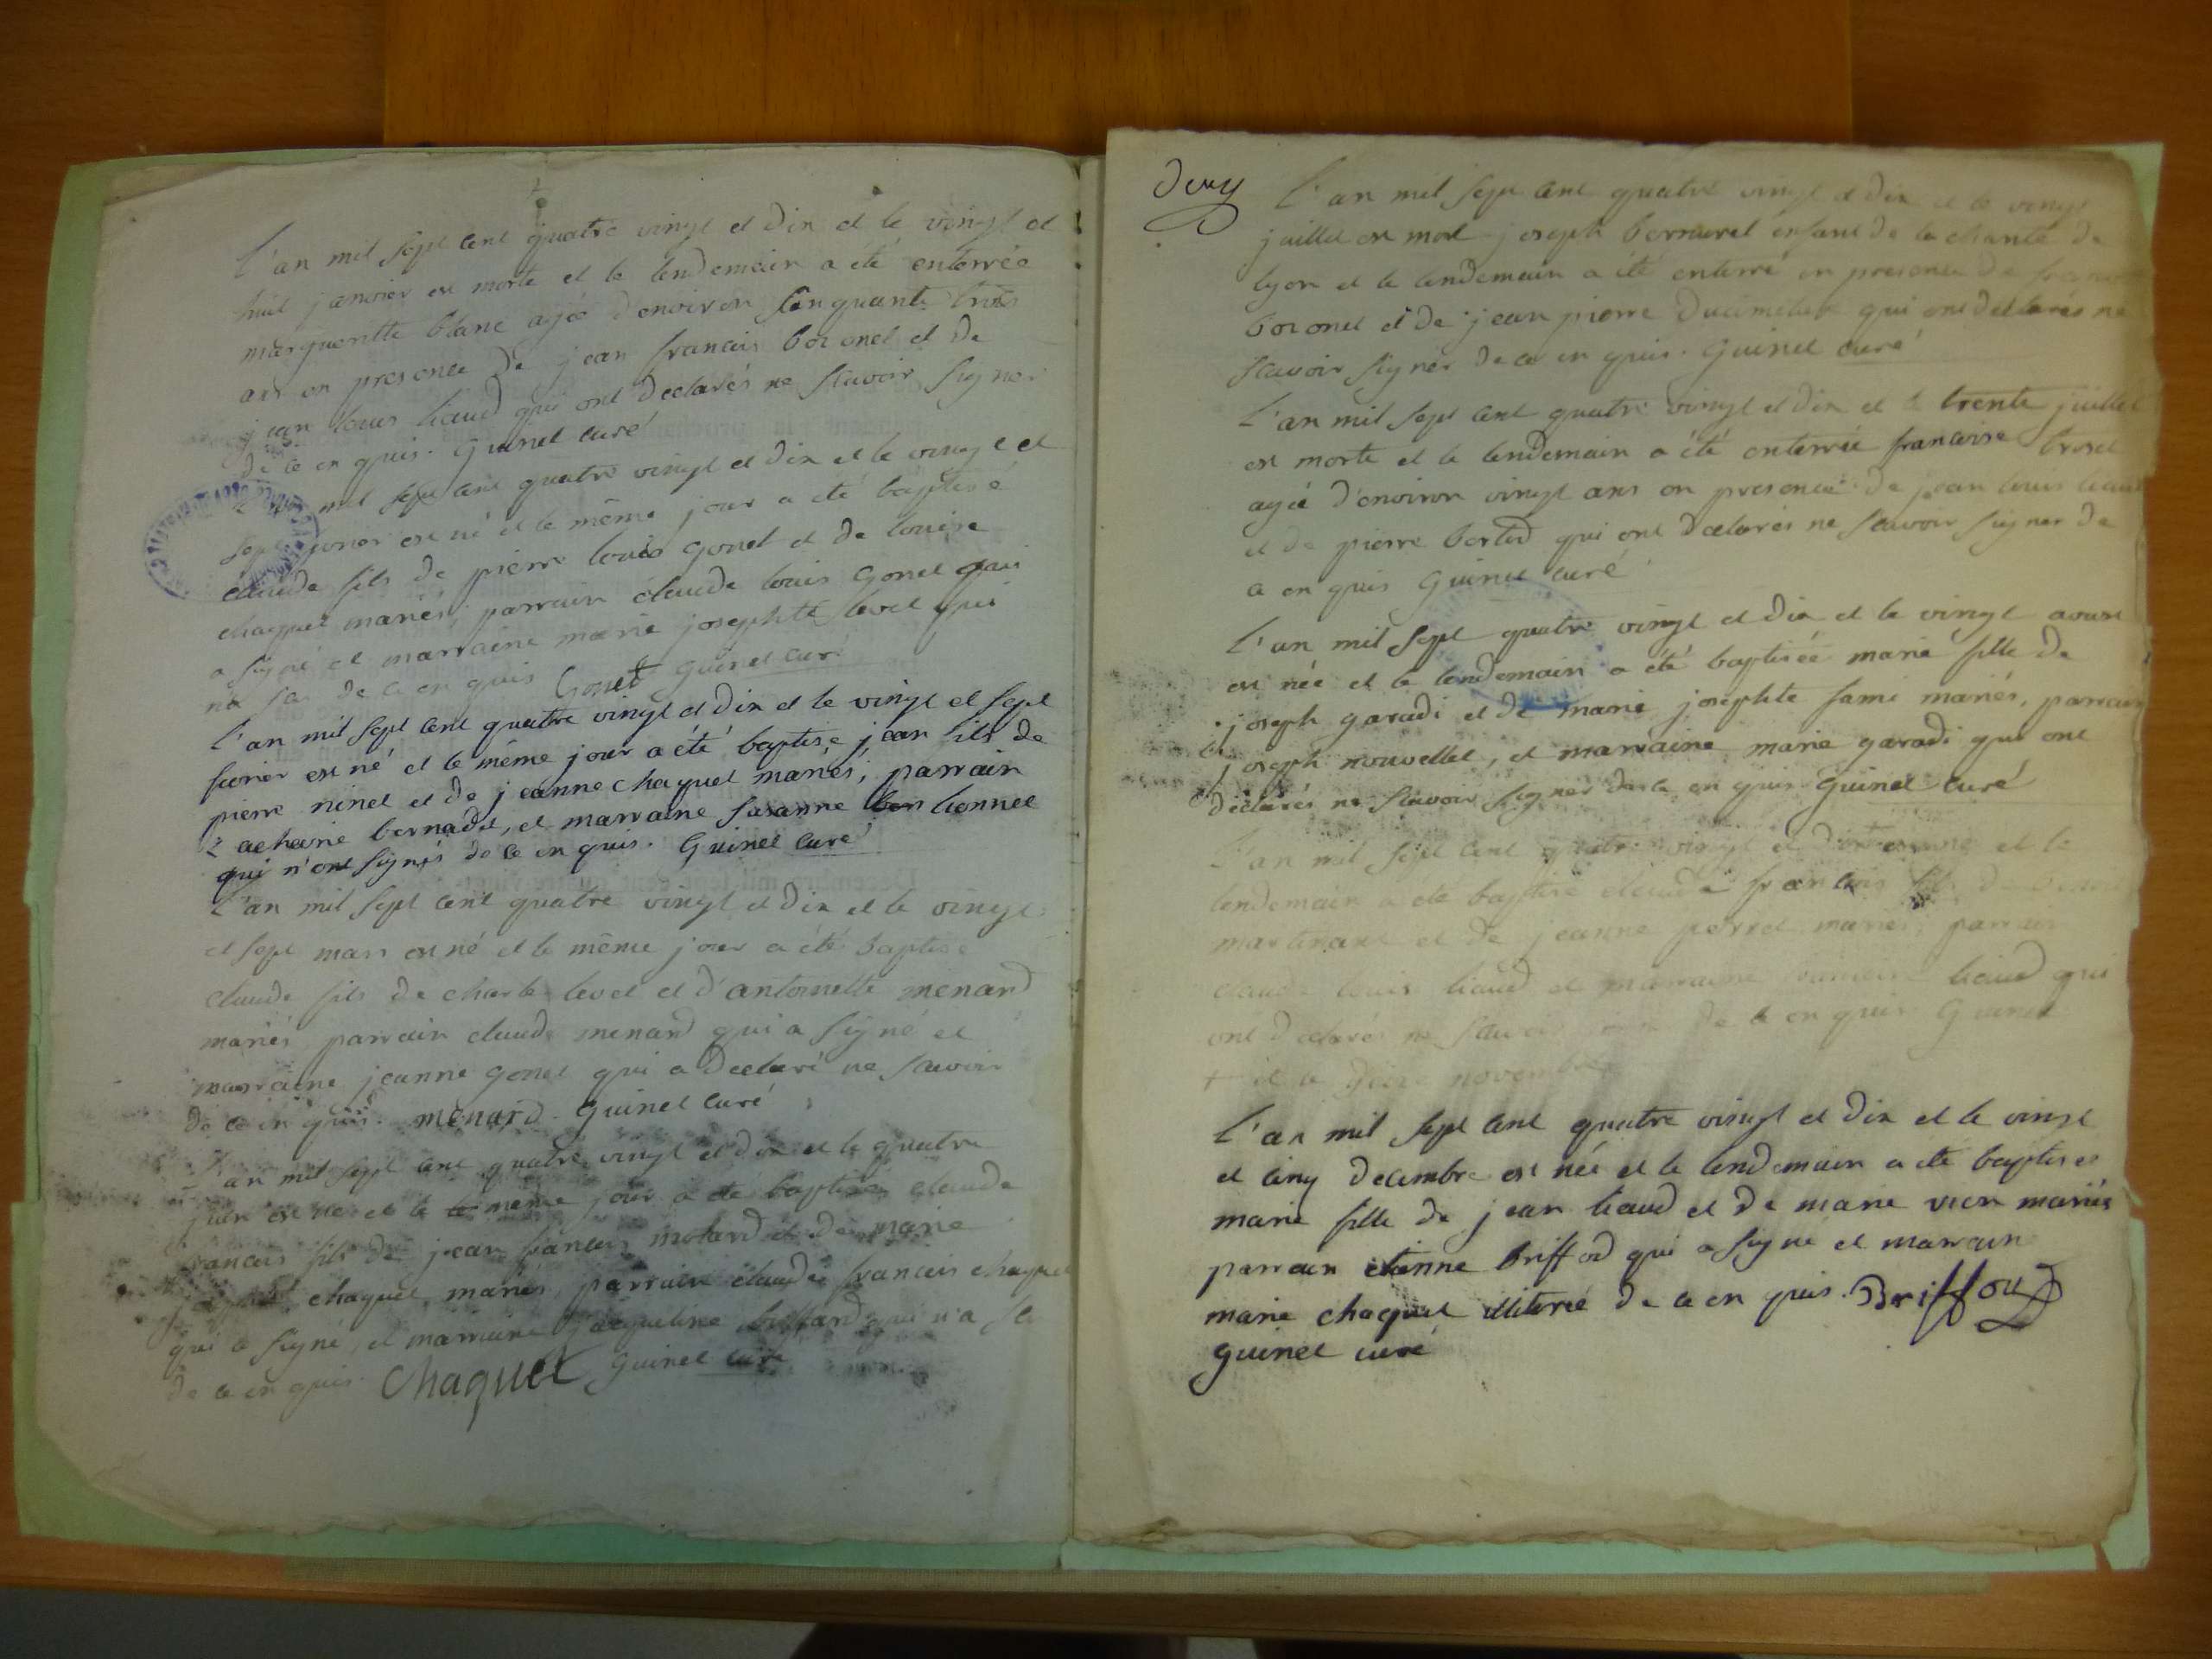 L'an mil sept cent quatre vingt et dix et le vingt et
huit janvier est morte et le lendemain a été enterrée
margueritte blanc agée d'environ cinquante trois
ans en presence de jean francois boronel et de
jean louis liaud qui ont declarés ne scavoir signer
de ce enquis. Guinet curé
L'an mil sept cent quatre vingt et dix et le vingt et
sept est né et le même jour a été baptisé
claude fils de pierre louis gonet et de louise
chaquet mariés, parrain claude louis gonet qui
a signé et marraine marie josephte levet qui
na sçu de ce enquis Gonet Guinet curé
L'an mil sept cent quatre vingt et dix et le vingt et sept
fevrier est né et le même jour a été baptisé jean fils de
pierre ninet et de jeanne chaquet mariés, parrain
zacharie bernadet, et marraine susanne lionnet
qui n'ont signés de ce enquis. Guinet curé
L'an mil sept cent quatre vingt et dix et le vingt
et sept mars est né et le même jour a été baptisé
claude fils de charle levet et d'antoinette menard
mariés parrain claude menard qui a signé et
marraine jeanne gonet qui a declaré ne scavoir
de ce enquis. menard. Guinet curé
L'an mil sept cent quatre vingt et dix et le quatre
juin est né et le même jour a été baptisé claude
francois fils de jean francois motard et de marie
chaquet mariés, parrain claude francois chaquet
qui a signé, et marraine jacqueline qui n'a sçu
de ce enquis. Chaquet Guinet curé
deux
L'an mil sept cent quatre vingt et dix et le vingt
juillet est mort joseph enfant de la charité de
lyon et le lendemain a été enterré en presence de
boronel et de jean pierre qui ont declarés ne
scavoir signer de ce enquis. Guinet curé
L'an mil sept cent quatre vingt et dix et le trente juillet
est morte et le lendemain a été enterrée francoise
agée d'environ vingt ans en presence de jean louis liaud
et de pierre qui ont declarés ne scavoir signer de
ce enquis Guinet curé
L'an mil sept quatre vingt et dix et le vingt aoust
est née et le lendemain a été baptisée marie fille de
joseph garadi et de marie josephte fami mariés, parrain
joseph nouvellet, et marraine marie garadi qui ont
declarés ne scavoir signer de ce enquis Guinet curé
L'an mil sept cent quatre vingt et dix est né et le
lendemain a été baptisé claude francois fils de
martinant et de jeanne perret mariés, parrain
claude louis liaud et marraine liaud qui
ont declarés ne scavoir de ce enquis Guinet
+ et le novembre
L'an mil sept cent quatre vingt et dix et le vingt
et cinq decembre est née et le lendemain a été baptisée
marie fille de jean liaud et de marie vion mariés
parrain etienne Briffod qui a signé et marraine
marie chaquet illiterée de ce enquis. Briffod
Guinet curé